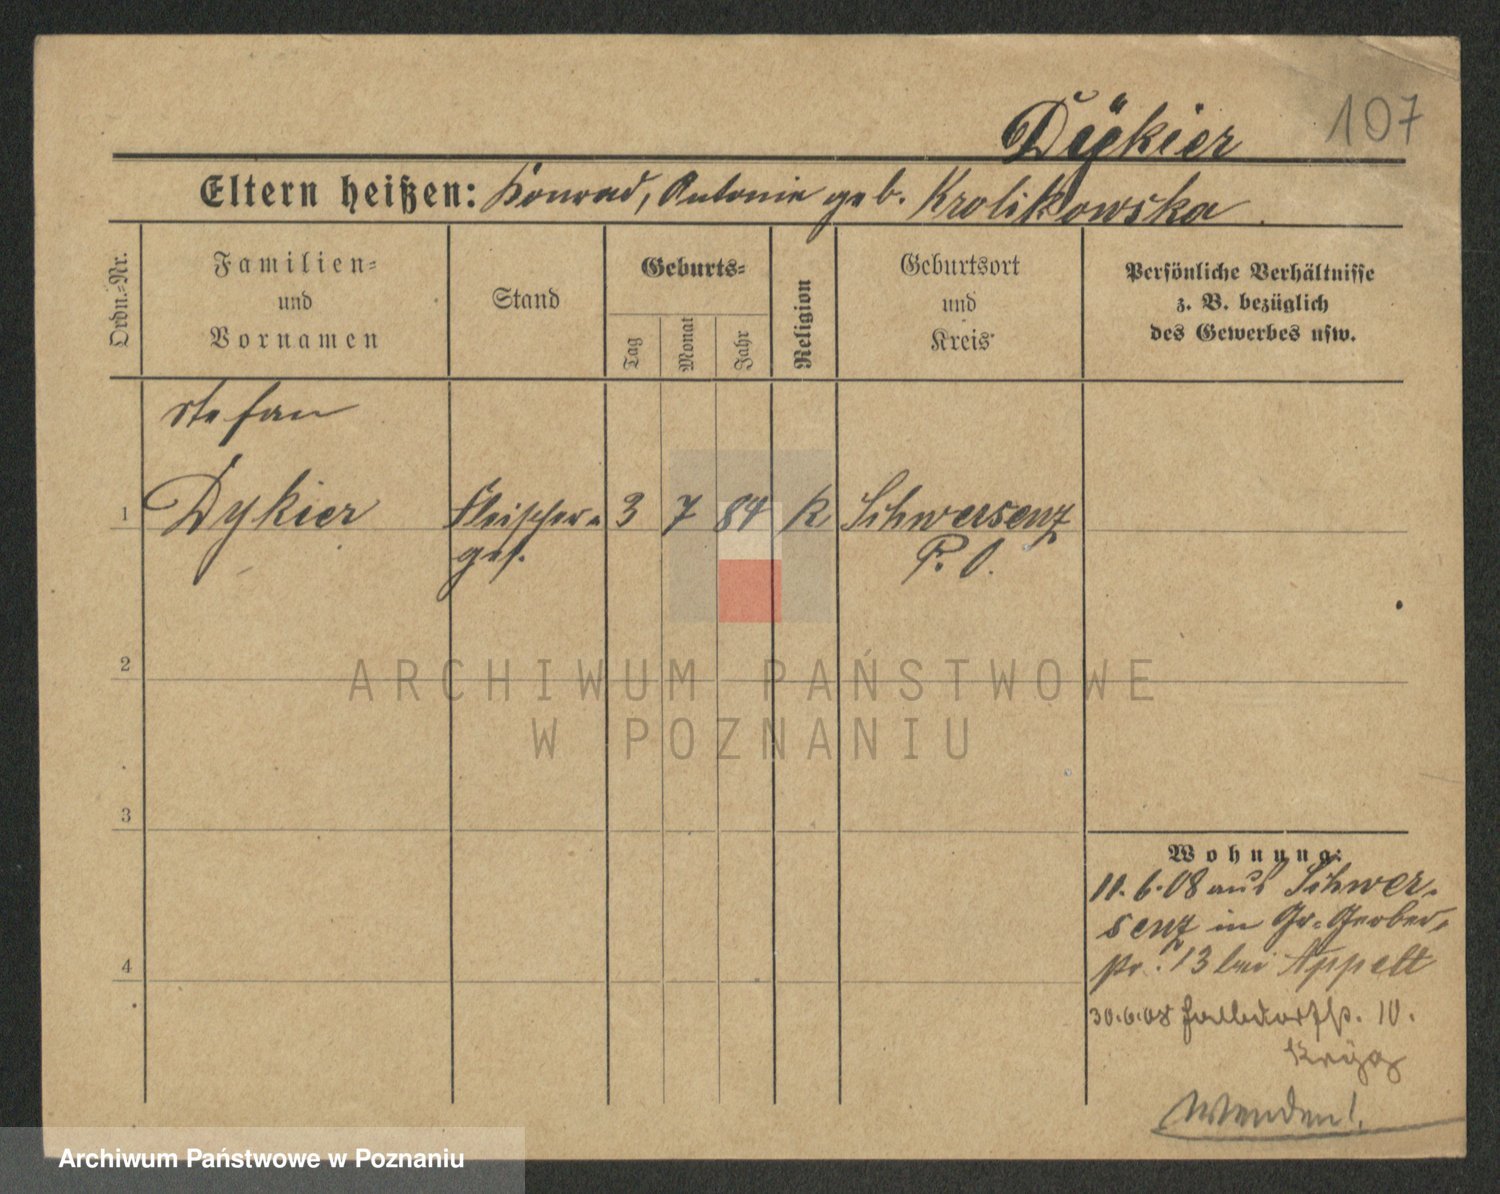 107
Dÿkier
Eltern heißen: Konrad, Antonie geb. Krolikowska.
Ordn.-Nr.
Familien-
und
Vornamen
Stand
Geburts-
Tag
Monat
Jahr
Religion
Geburtsort
und
Kreis
Persönliche Verhältnisse
z. B. bezüglich
des Gewerbes usw.
Stefan
1 Dykier Fleischer- 3 7 84 K Schwersenz
ges. P. O.
2
3
4
Wohnung:
11.6.08 aus Schwer-
senz in Gr. Gerber-
str. 13 bei Appelt
30.6.08 10.
Wenden!
ARCHIWUM PAŃSTWOWE
W POZNANIU
Archiwum Państwowe w Poznaniu